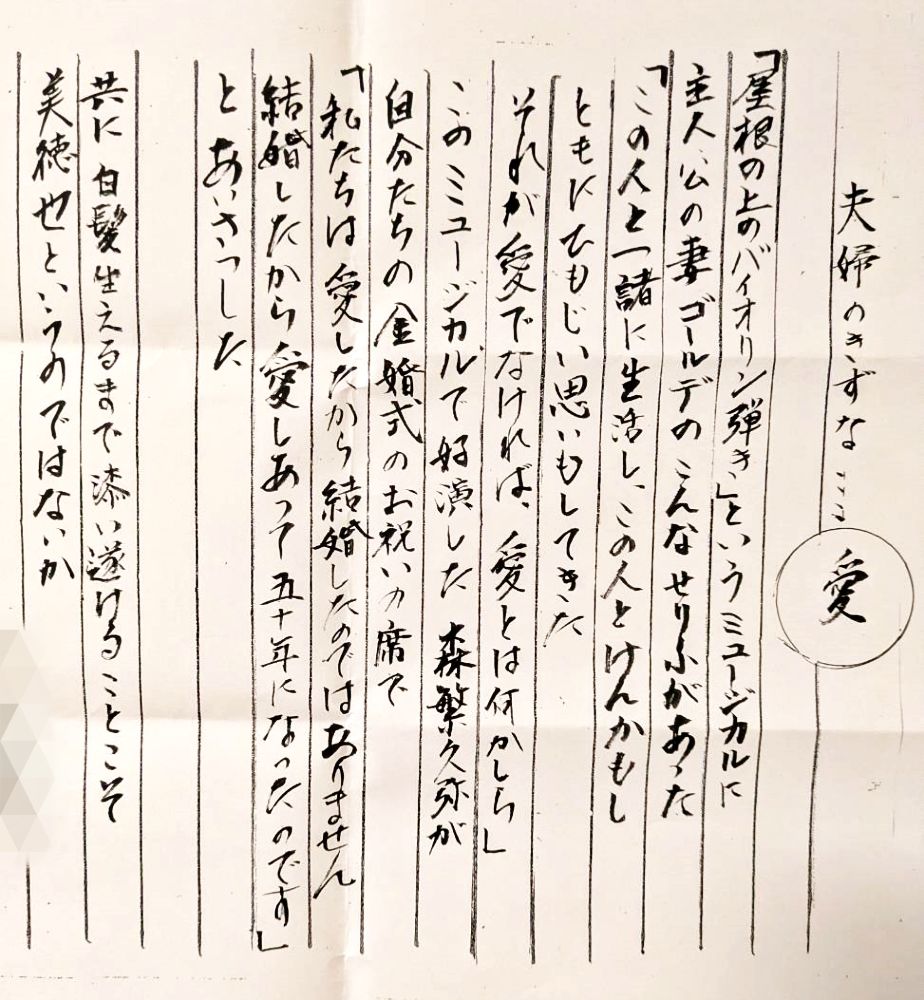 夫婦のきずな……愛
「屋根の上のバイオリン弾き」というミュージカルに
主人公の妻ゴールデのこんなせりふがあった
「この人と一諸に生活し、この人とけんかもし
ともにひもじい思いもしてきた
それが愛でなければ、愛とは何かしら」
このミュージカルで好演した森繁久弥が
自分たちの金婚式のお祝いの席で
「私たちは愛したから結婚したのではありません
結婚したから愛しあって五十年になったのです」
とあいさつした
共に白髪生えるまで添い遂けることこそ
美徳也というのではないか